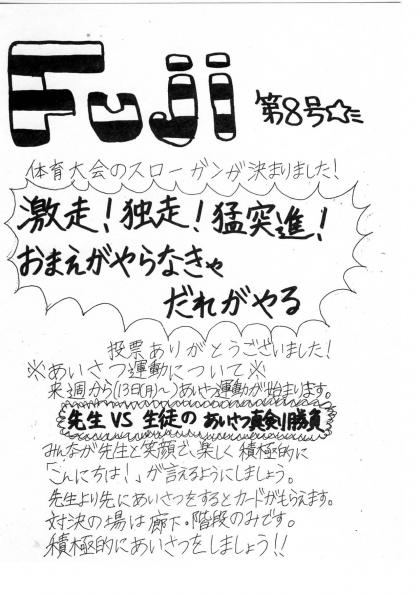 Fuji 第8号☆ミ
体育大会のスローガンが決まりました！
激走！独走！猛突進！
おまえがやらなきゃ
だれがやる
投票ありがとうございました！
※あいさつ運動について※
来週から(13日(月)～)あいさつ運動が始まります。
先生 VS 生徒の あいさつ真剣勝負
みんなが先生と笑顔で、楽しく積極的に
「こんにちは！」が言えるようにしましょう。
先生より先にあいさつをするとカードがもらえます。
対決の場は廊下・階段のみです。
積極的にあいさつをしましょう！！